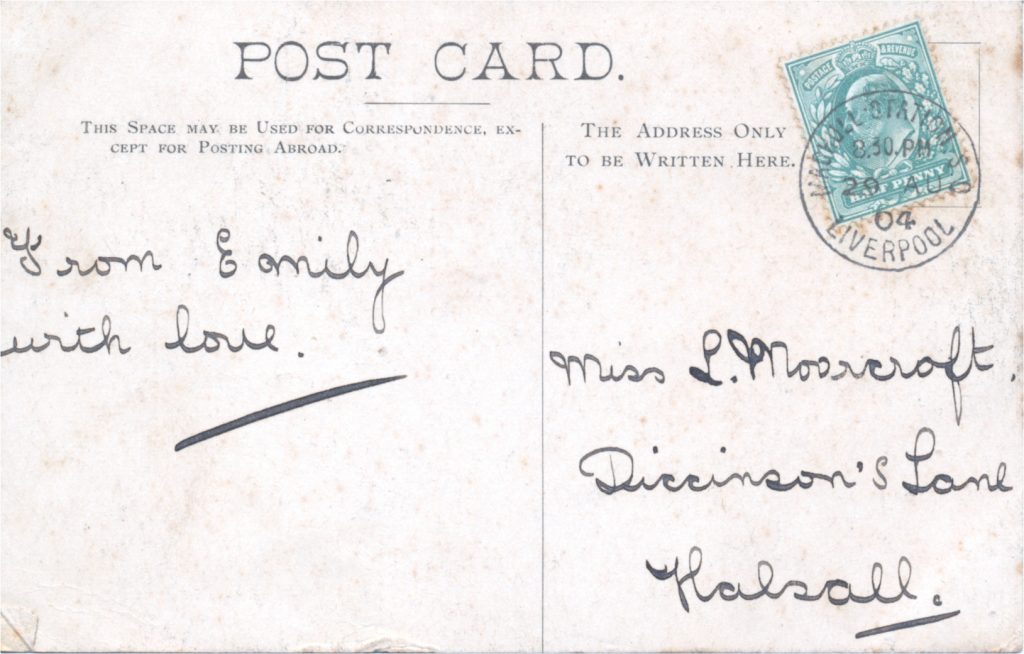 POST CARD.
THIS SPACE MAY BE USED FOR CORRESPONDENCE, EX-
CEPT FOR POSTING ABROAD.
THE ADDRESS ONLY
TO BE WRITTEN HERE.
POSTAGE & REVENUE
HALF PENNY
MAGHULL STATION S.O
8.30.PM
29 AU
04
LIVERPOOL
From Emily
with love.
Miss L. Moorcroft.
Diccinson's Lane
Halsall.